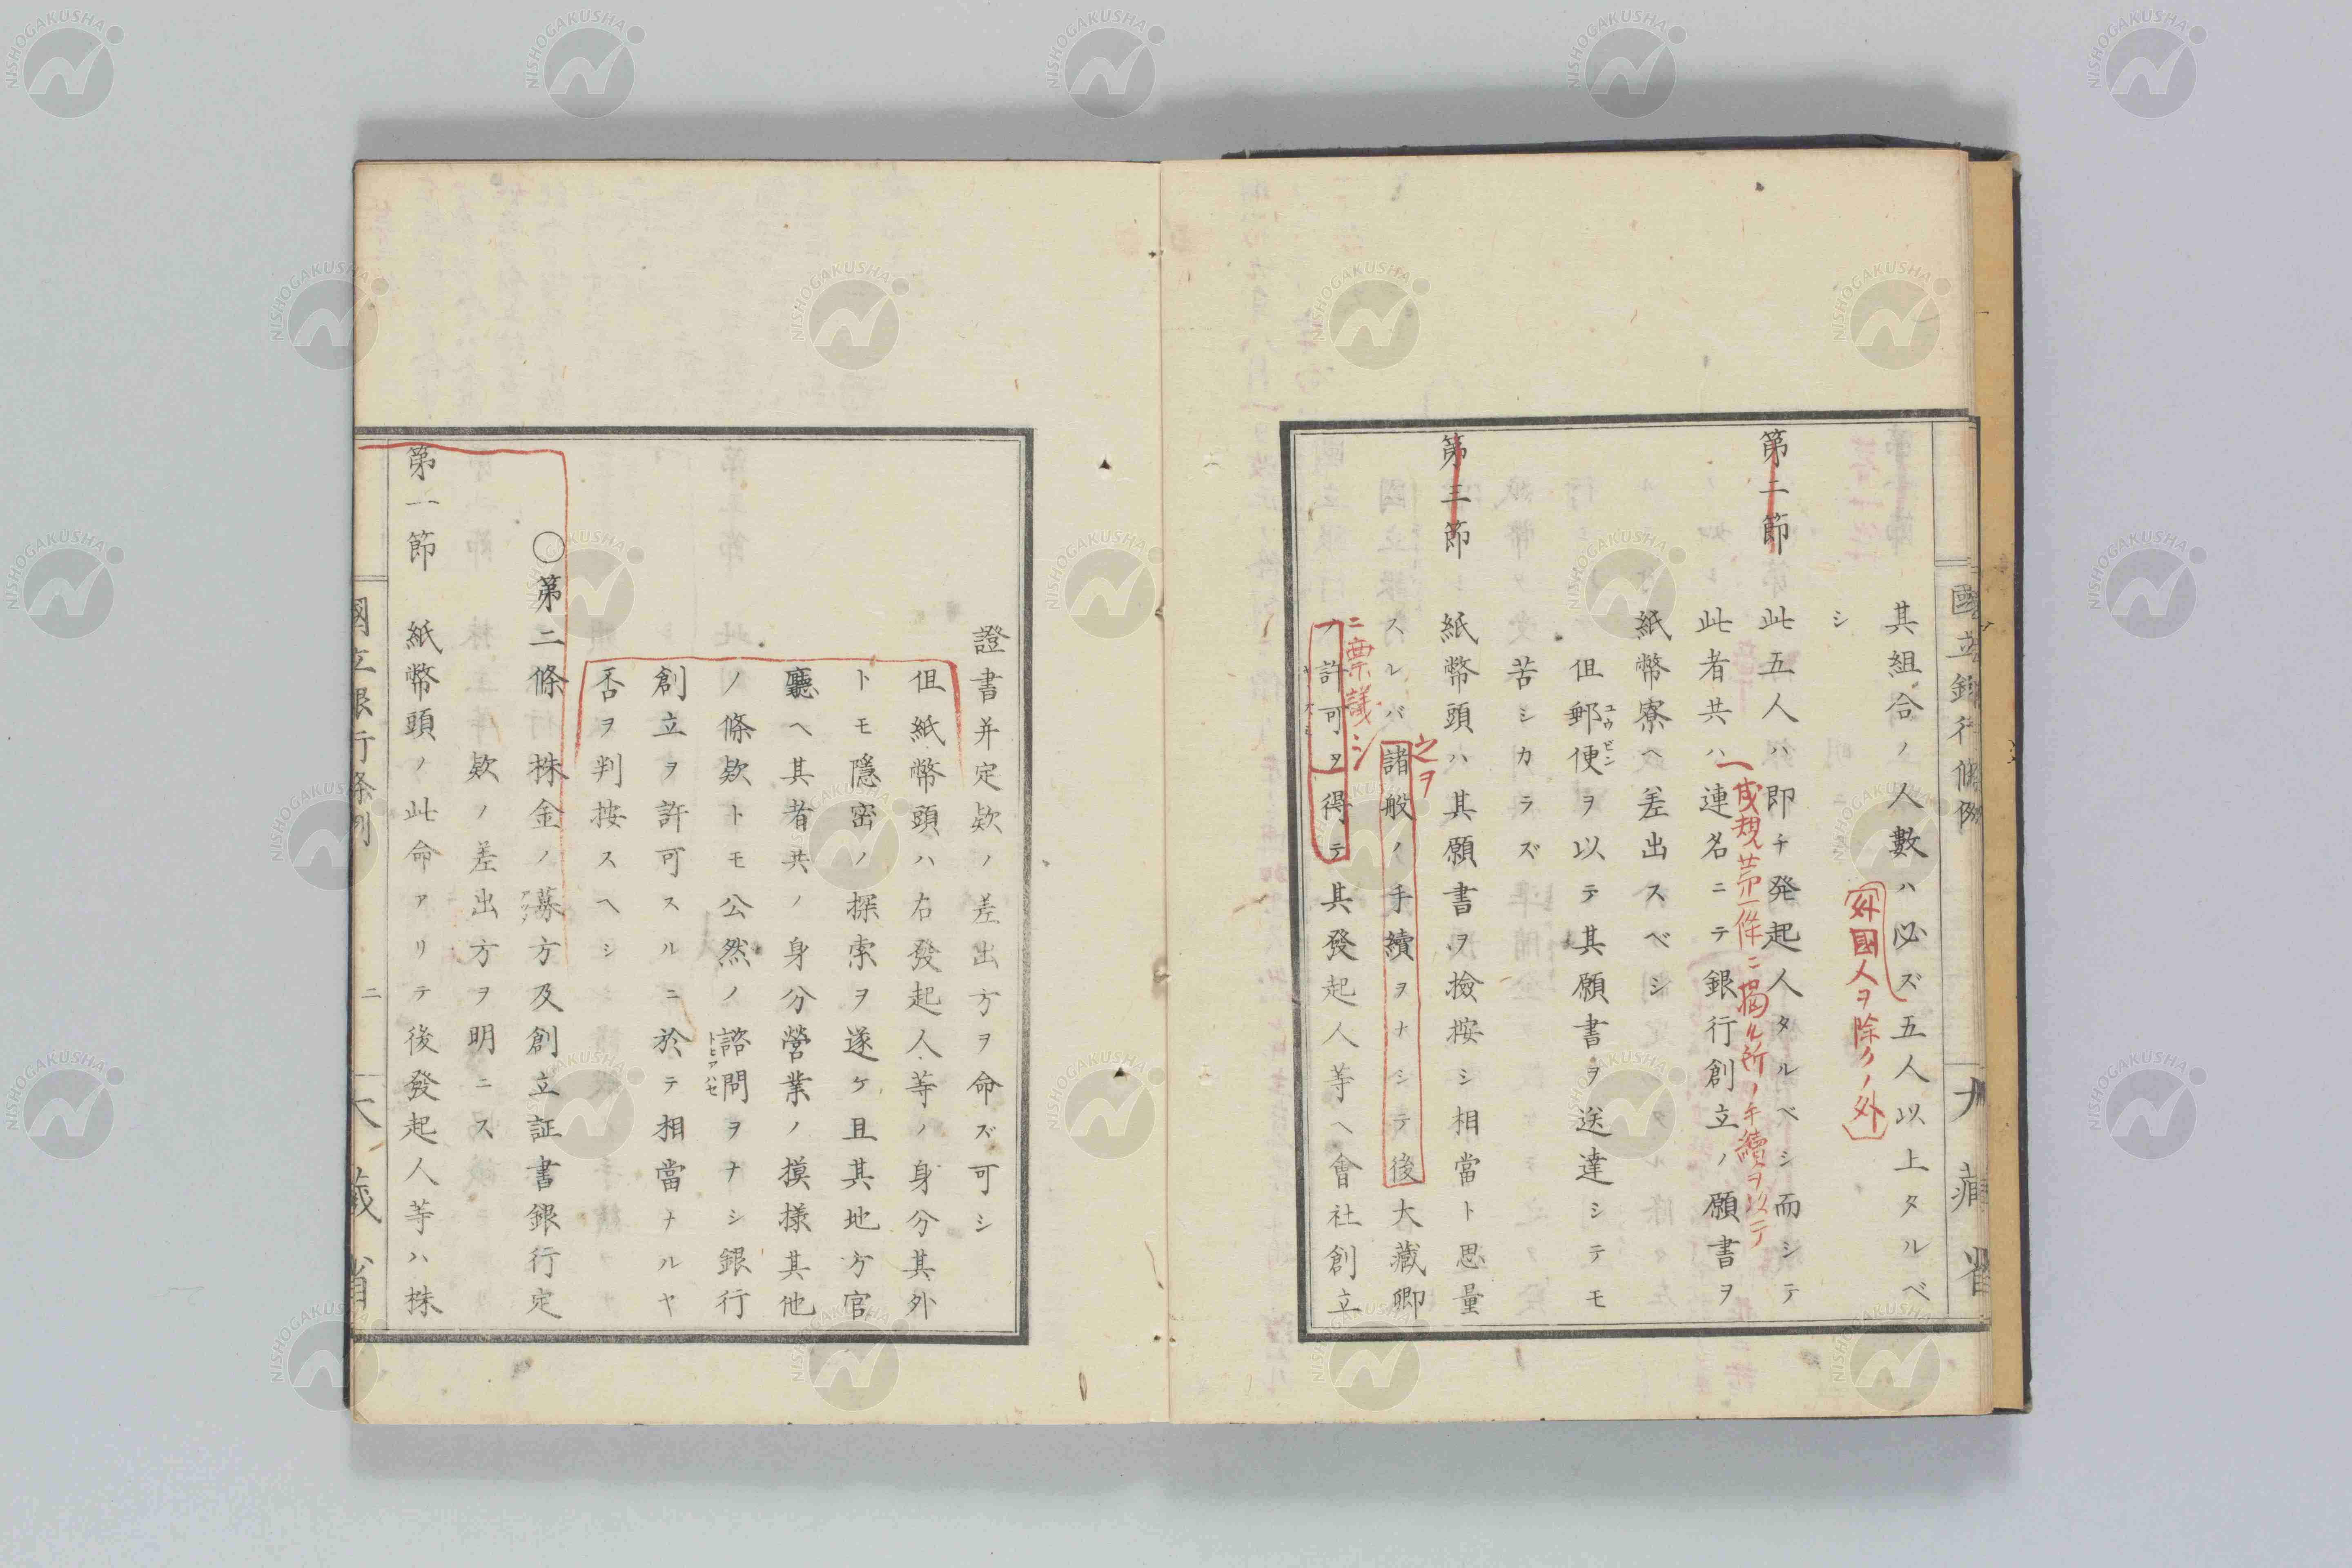 國立銀行條例
大藏省
其組合ノ人數ハ必ズ五人以上タルベ
外國人ヲ除クノ外
シ
第二節 此五人ハ即チ発起人タルベシ而シテ
成規第一條ニ掲ル所ノ手續ヲ以テ
此者共ハ連名ニテ銀行創立ノ願書ヲ
紙幣寮ヘ差出スベシ
但郵便ヲ以テ其願書ヲ送達シテモ
ユウビン
苦シカラズ
第三節 紙幣頭ハ其願書ヲ撿按シ相當ト思量
之ヲ
スルバ諸般ノ手續ヲナシテ後大藏卿
ニ稟議シ
ノ許可ヲ得テ其發起人等ヘ會社創立
證書并定欵ノ差出方ヲ命ズ可シ
但紙幣頭ハ右發起人等ノ身分其外
トモ隱密ノ探索ヲ遂ケ且其地方官
廳ヘ其者共ノ身分營業ノ摸樣其他
ノ條欵トモ公然ノ諮問ヲナシ銀行
トヒアハセ
創立ヲ許可スルニ於テ相當ナルヤ
否ヲ判按スヘシ
〇第二條 株金ノ募方及創立証書銀行定
欵ノ差出方ヲ明ニス
第一節 紙幣頭ノ此命アリテ後發起人等ハ株
國立銀行條例
二
大藏省
NISHOGAKUSHA